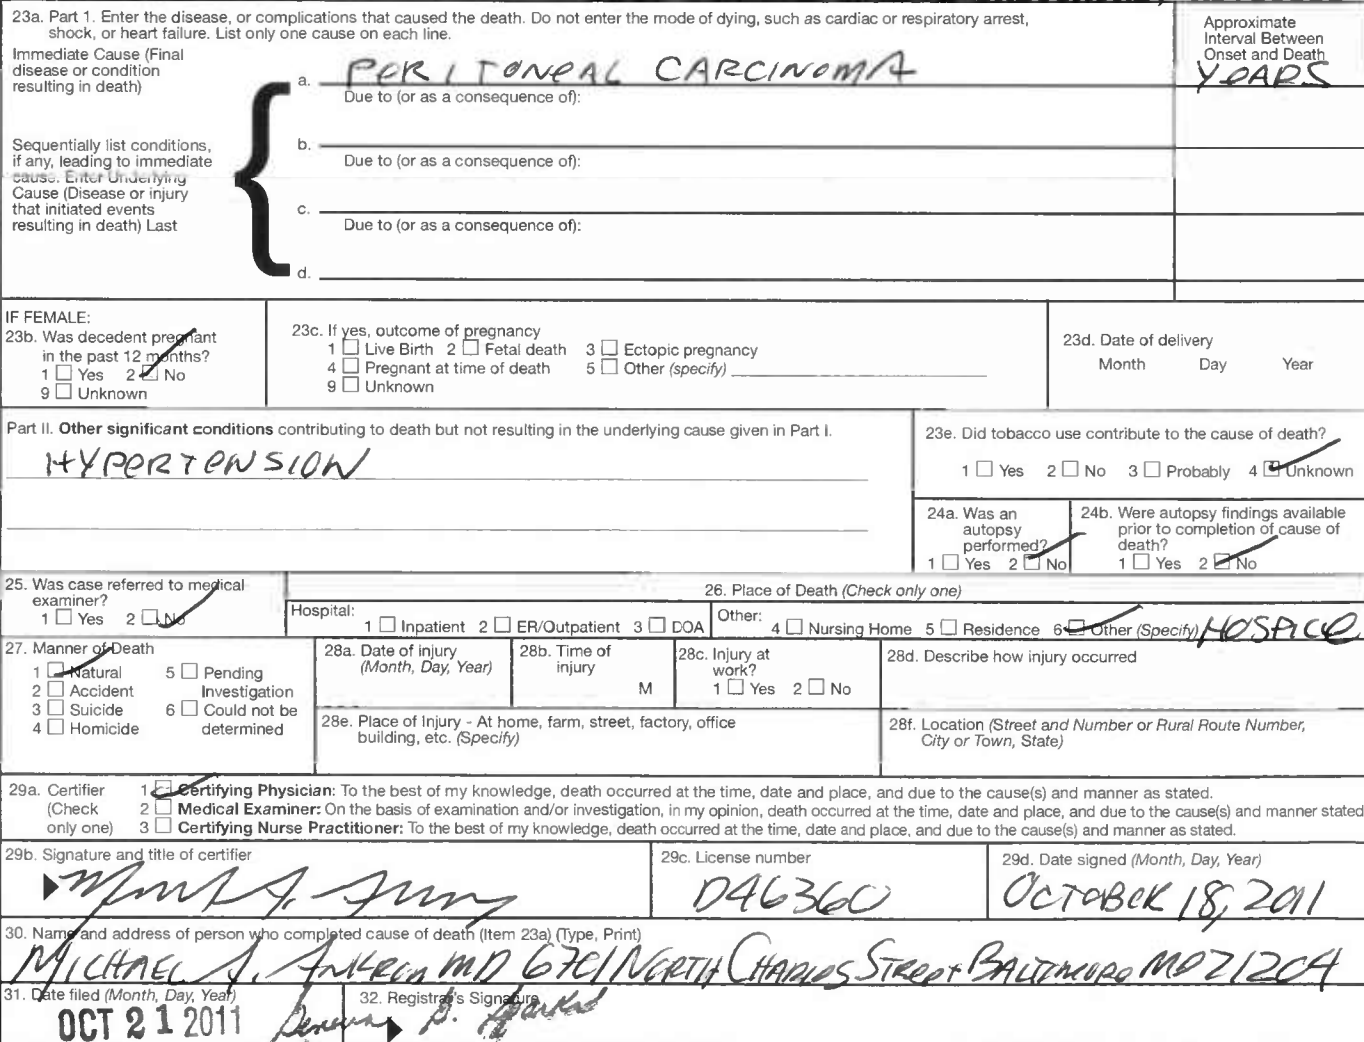 23a. Part 1. Enter the disease, or complications that caused the death. Do not enter the mode of dying, such as cardiac or respiratory arrest,
shock, or heart failure. List only one cause on each line.
Approximate
Interval Between
Onset and Death
Immediate Cause (Final
disease or condition
resulting in death)
a. PERITONEAL CARCINOMA
YEARS
Due to (or as a consequence of):
Sequentially list conditions,
if any, leading to immediate
cause. Enter Underlying
Cause (Disease or injury
that initiated events
resulting in death) Last
b.
Due to (or as a consequence of):
c.
Due to (or as a consequence of):
d.
IF FEMALE:
23b. Was decedent pregnant
in the past 12 months?
1 Yes 2 No
9 Unknown
23c. If yes, outcome of pregnancy
1 Live Birth 2 Fetal death 3 Ectopic pregnancy
4 Pregnant at time of death 5 Other (specify)
9 Unknown
23d. Date of delivery
Month Day Year
Part II. Other significant conditions contributing to death but not resulting in the underlying cause given in Part I.
HYPERTENSION
23e. Did tobacco use contribute to the cause of death?
1 Yes 2 No 3 Probably 4 Unknown
24a. Was an
autopsy
performed?
1 Yes 2 No
24b. Were autopsy findings available
prior to completion of cause of
death?
1 Yes 2 No
25. Was case referred to medical
examiner?
1 Yes 2 No
26. Place of Death (Check only one)
Hospital:
1 Inpatient 2 ER/Outpatient 3 DOA
Other:
4 Nursing Home 5 Residence 6 Other (Specify) HOSPICE
27. Manner of Death
1 Natural
2 Accident
3 Suicide
4 Homicide
5 Pending
Investigation
6 Could not be
determined
28a. Date of injury
(Month, Day, Year)
28b. Time of
injury
M
28c. Injury at
work?
1 Yes 2 No
28d. Describe how injury occurred
28e. Place of Injury - At home, farm, street, factory, office
building, etc. (Specify)
28f. Location (Street and Number or Rural Route Number,
City or Town, State)
29a. Certifier
(Check
only one)
1 Certifying Physician: To the best of my knowledge, death occurred at the time, date and place, and due to the cause(s) and manner as stated.
2 Medical Examiner: On the basis of examination and/or investigation, in my opinion, death occurred at the time, date and place, and due to the cause(s) and manner stated
3 Certifying Nurse Practitioner: To the best of my knowledge, death occurred at the time, date and place, and due to the cause(s) and manner as stated.
29b. Signature and title of certifier
29c. License number
D46360
29d. Date signed (Month, Day, Year)
OCTOBER 18, 2011
30. Name and address of person who completed cause of death (Item 23a) (Type, Print)
MICHAEL A. ANKROM MD 6701 NORTH CHARLES STREET BALTIMORE MD 21204
31. Date filed (Month, Day, Year)
OCT 21 2011
32. Registrar's Signature